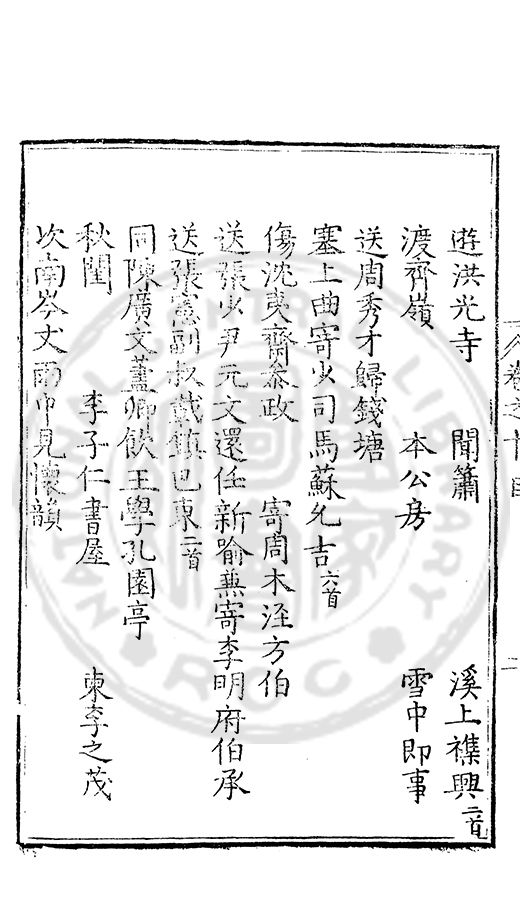 遊洪光寺　聞簫　溪上襍興二首
渡齊嶺　本公房　雪中即事
送周秀才歸錢塘
塞上曲寄少司馬蘇允吉六首
傷沈夷齋叅政　寄周木涇方伯
送張少尹元文還任新喻兼寄李明府伯承
送張憲副叔載鎮巴東二首
同陳廣文藎卿飲王學孔園亭
秋閨　李子仁書屋　柬李之茂
次南岑丈雨中見懷韻
卷之十目
二
NATIONAL CENTRAL LIBRARY
R.O.C